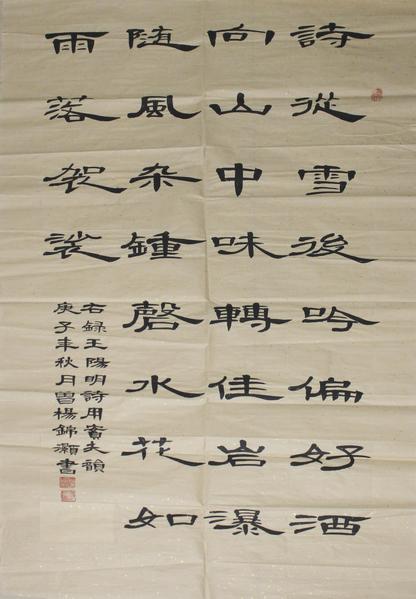 詩從雪後吟偏好酒
向山中味轉佳岩瀑
随風杂鍾磬水花如
雨落袈裟
右録王陽明詩用賓夫韻
庚子年秋月昌楊錦灝書